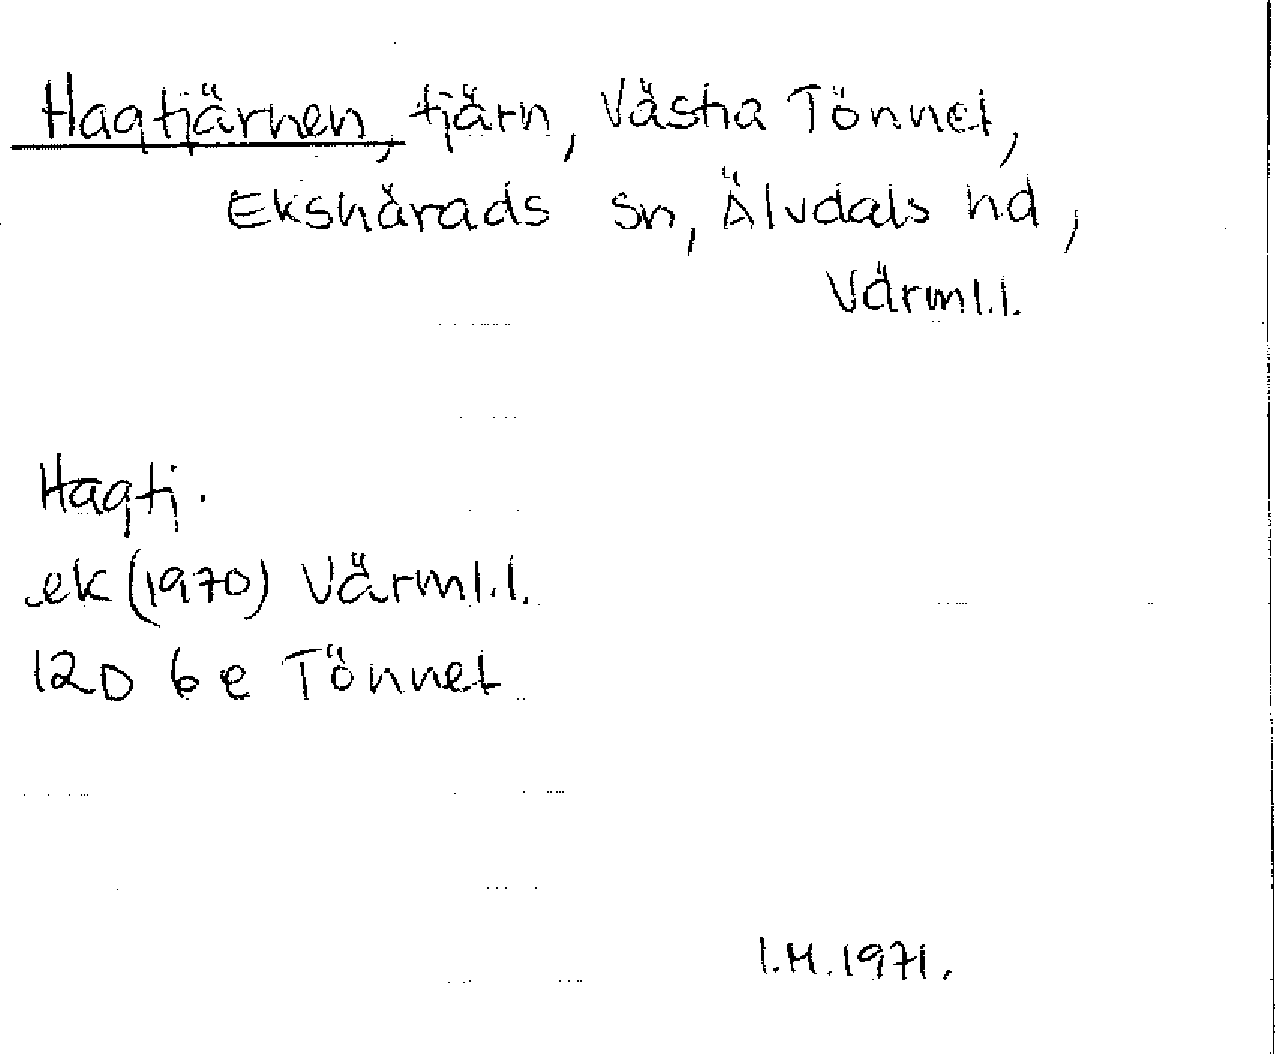 Hagtjärnen, tjärn, Västra Tönnet,
Ekshärads sn, Älvdals hd,
Värml.l.
Hagtj.
ek (1970) Värml.l.
12D 6e Tönnet
I.M.1971.